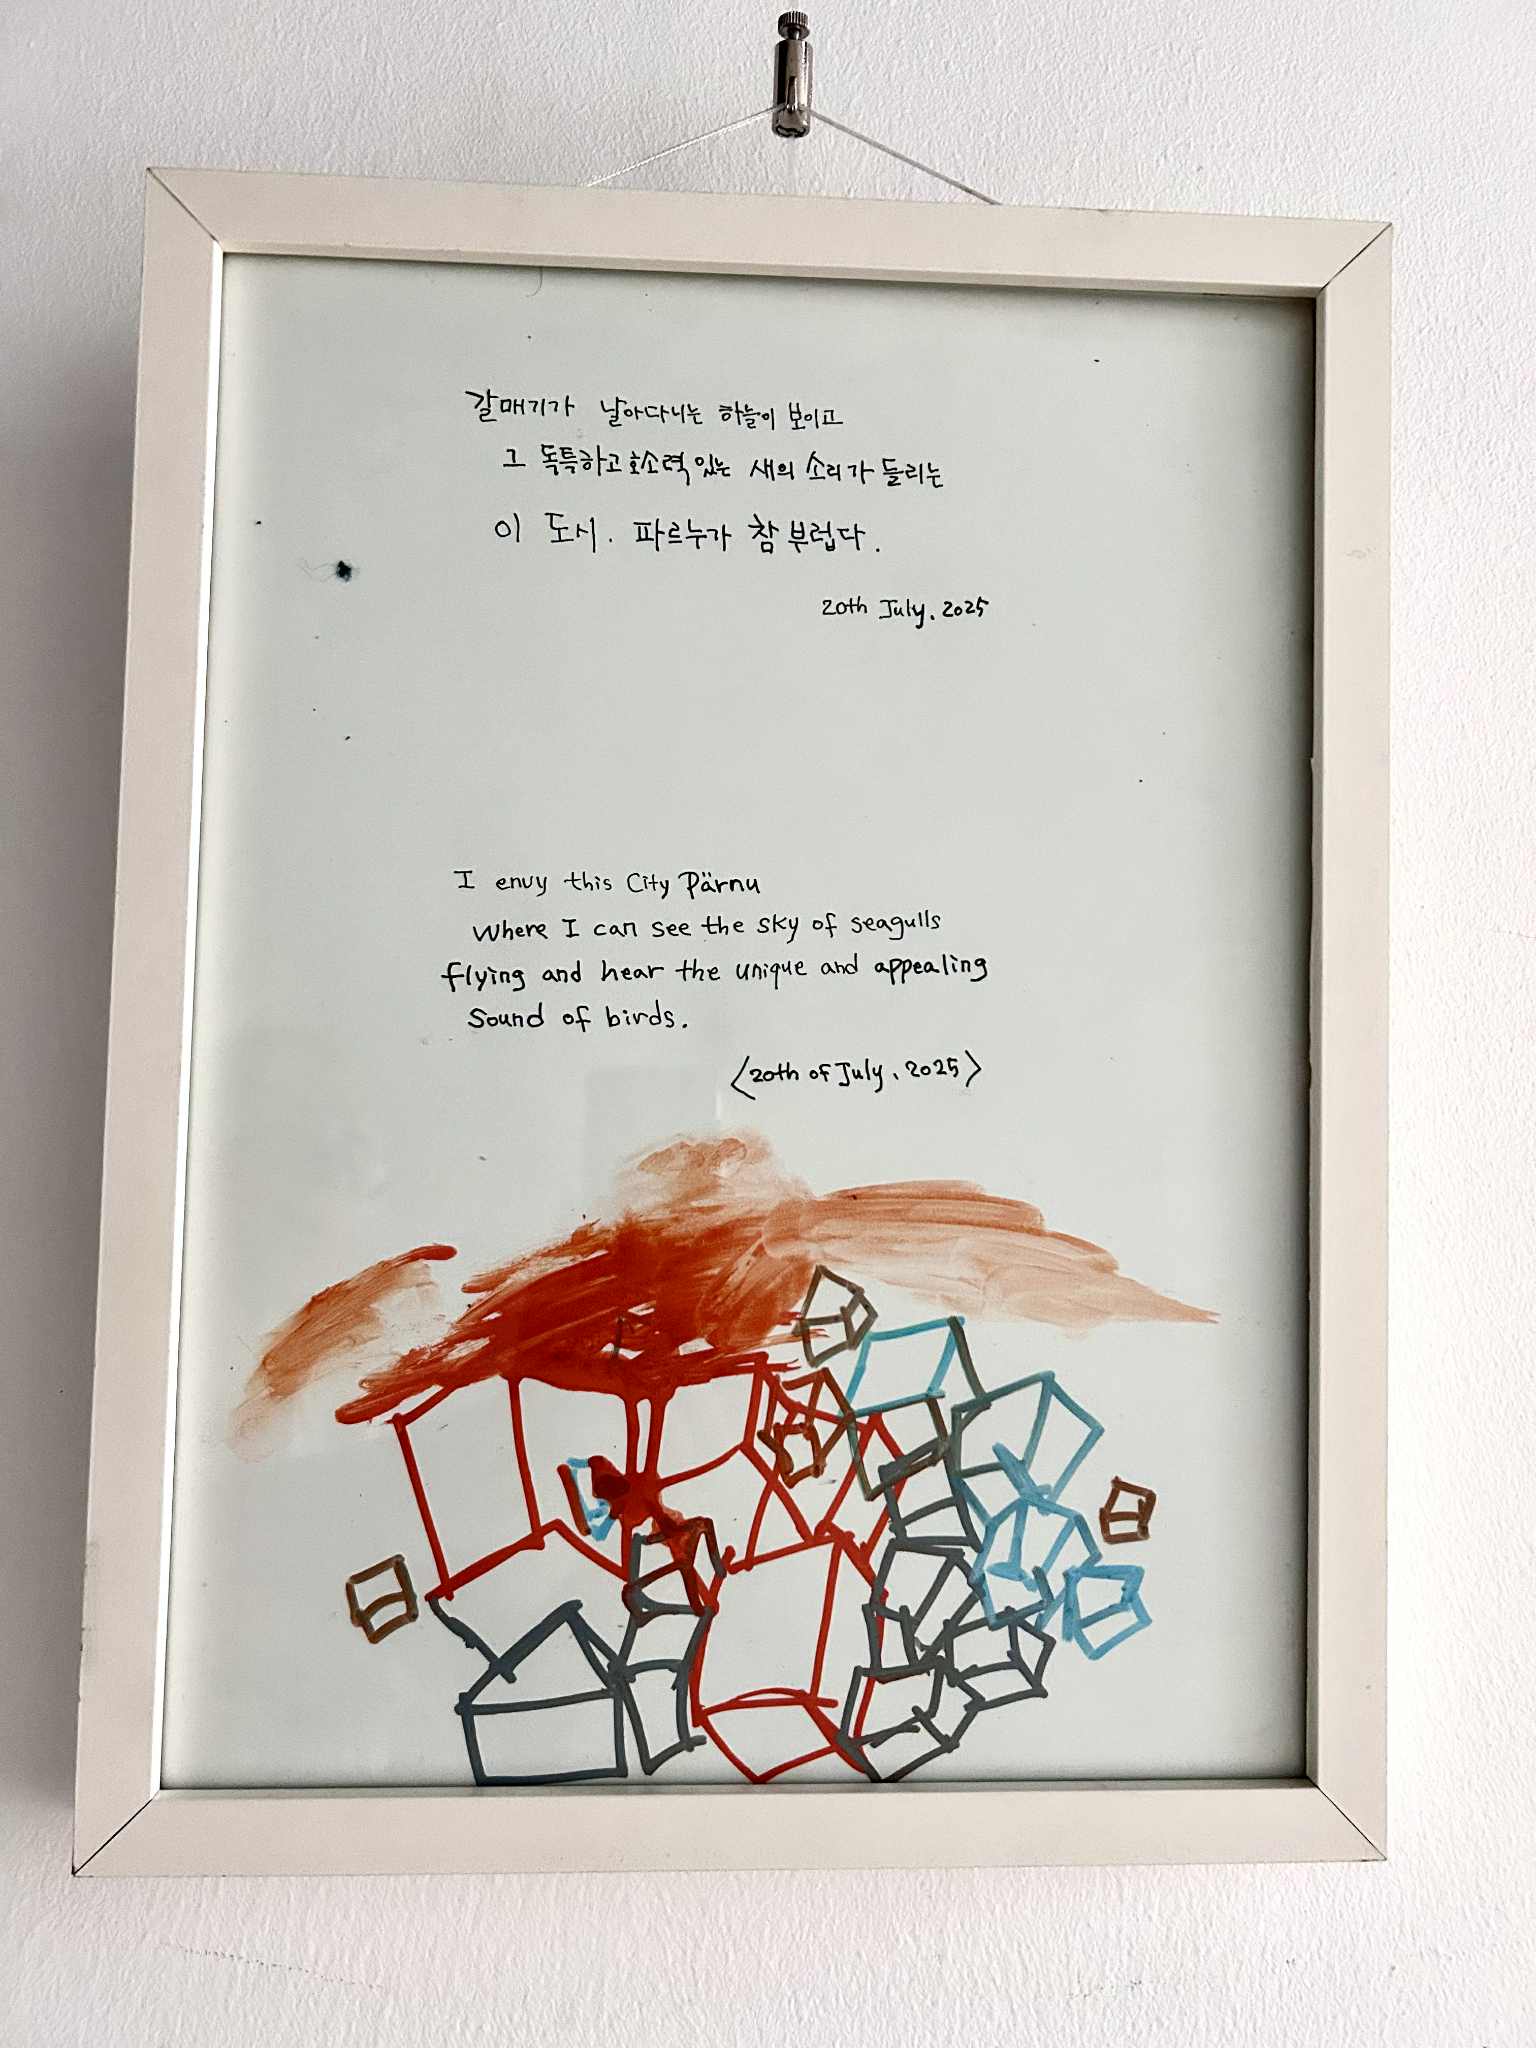 갈매기가 날아다니는 하늘이 보이고
그 독특하고 호소력 있는 새의 소리가 들리는
이 도시. 파르누가 참 부럽다.
20th July. 2025
I envy this City Pärnu
where I can see the sky of seagulls
flying and hear the unique and appealing
sound of birds.
<20th of July. 2025>